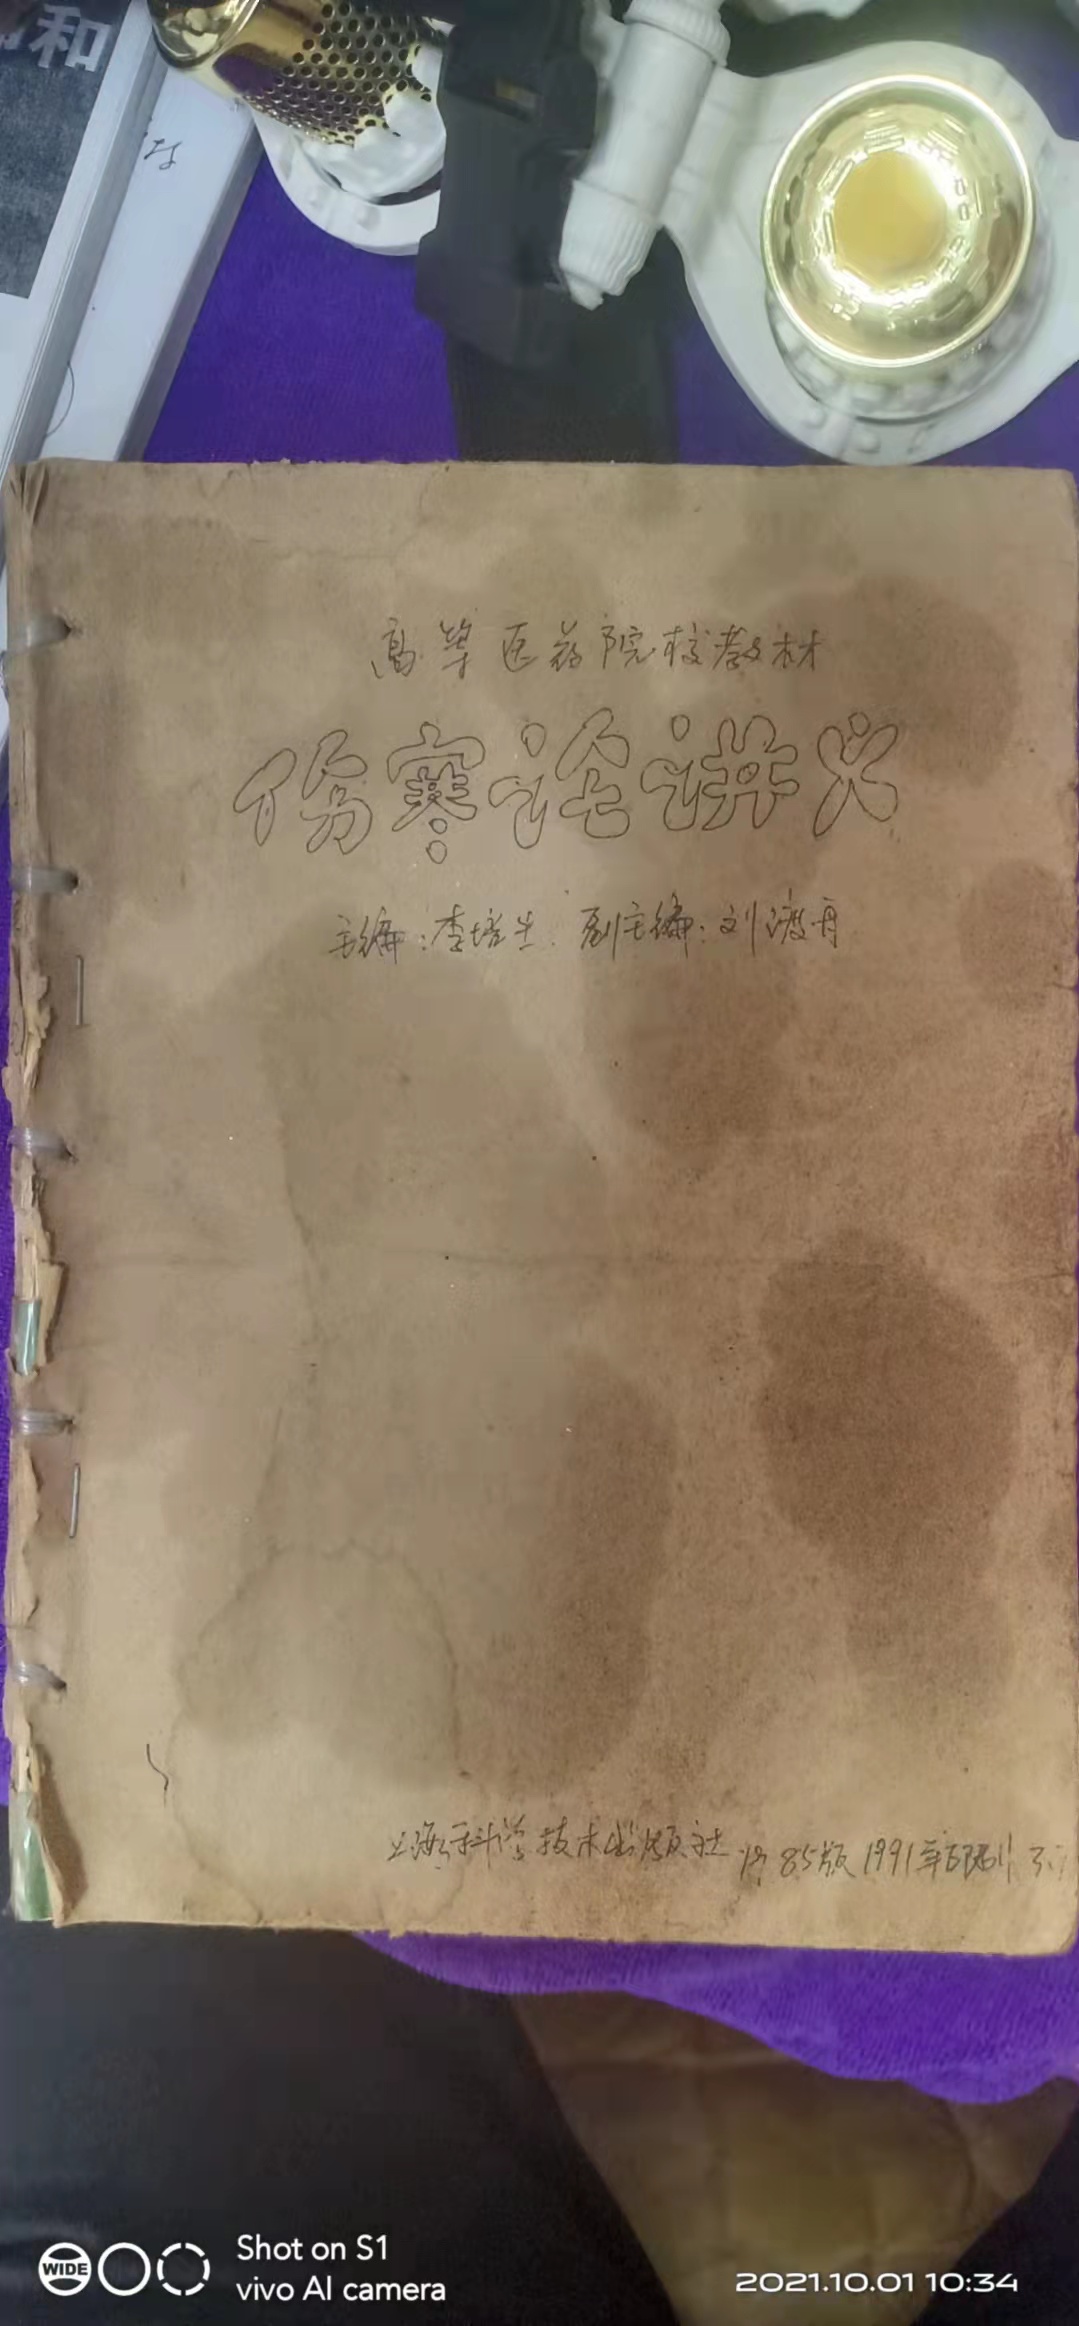 和
高等医药院校教材
伤寒论讲义
主编:李培生 副主编:刘渡舟
上海科学技术出版社 85版 1991年印刷
WIDE
Shot on S1
vivo AI camera
2021.10.01 10:34